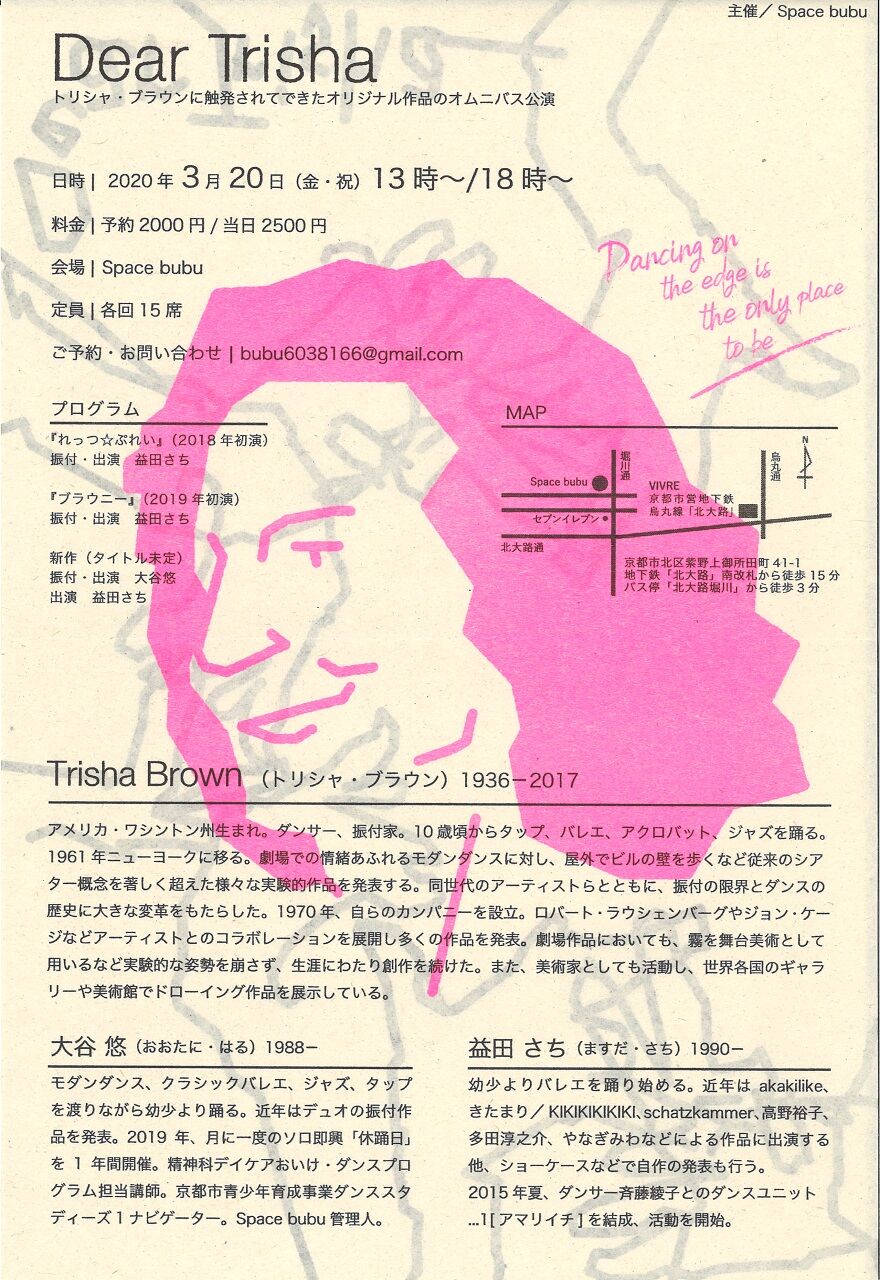 主催／Space bubu
Dear Trisha
トリシャ・ブラウンに触発されてできたオリジナル作品のオムニバス公演
日時 | 2020年 3月 20日（金・祝）13時～/18時～
料金 | 予約2000円 / 当日2500円
会場 | Space bubu
定員 | 各回15席
ご予約・お問い合わせ | bubu6038166@gmail.com
Dancing on
the edge is
the only place
to be
プログラム
『れっつ☆ぷれい』（2018年初演）
振付・出演　益田さち
『ブラウニー』（2019年初演）
振付・出演　益田さち
新作（タイトル未定）
振付・出演　大谷悠
出演　益田さち
MAP
堀川通
烏丸通
N
Space bubu
セブンイレブン
北大路通
VIVRE
京都市営地下鉄
烏丸線「北大路」
京都市北区紫野上御所田町41-1
地下鉄「北大路」南改札から徒歩15分
バス停「北大路堀川」から徒歩3分
Trisha Brown（トリシャ・ブラウン）1936−2017
アメリカ・ワシントン州生まれ。ダンサー、振付家。10歳頃からタップ、バレエ、アクロバット、ジャズを踊る。
1961年ニューヨークに移る。劇場での情緒あふれるモダンダンスに対し、屋外でビルの壁を歩くなど従来のシア
ター概念を著しく超えた様々な実験的作品を発表する。同世代のアーティストらとともに、振付の限界とダンスの
歴史に大きな変革をもたらした。1970年、自らのカンパニーを設立。ロバート・ラウシェンバーグやジョン・ケー
ジなどアーティストとのコラボレーションを展開し多くの作品を発表。劇場作品においても、霧を舞台美術として
用いるなど実験的な姿勢を崩さず、生涯にわたり創作を続けた。また、美術家としても活動し、世界各国のギャラ
リーや美術館でドローイング作品を展示している。
大谷 悠（おおたに・はる）1988−
モダンダンス、クラシックバレエ、ジャズ、タップ
を渡りながら幼少より踊る。近年はデュオの振付作
品を発表。2019年、月に一度のソロ即興「休踊日」
を1年間開催。精神科デイケアおいけ・ダンスプロ
グラム担当講師。京都市青少年育成事業ダンススタ
ディーズ1ナビゲーター。Space bubu管理人。
益田 さち（ますだ・さち）1990−
幼少よりバレエを踊り始める。近年は akakilike、
きたまり／KIKIKIKIKIKI、schatzkammer、高野裕子、
多田淳之介、やなぎみわなどによる作品に出演する
他、ショーケースなどで自作の発表も行う。
2015年夏、ダンサー斉藤綾子とのダンスユニット
…1[アマリイチ]を結成、活動を開始。